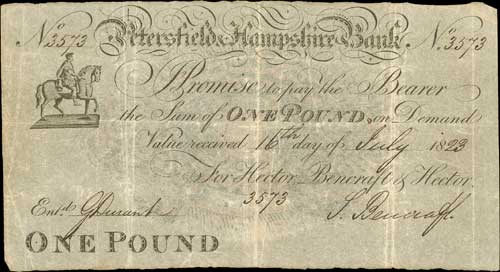 No. 3573 Petersfield & Hampshire Bank. No. 3573
I Promise to pay the Bearer
the Sum of ONE POUND on Demand
Value received 16th day of July 1823
For Hector, Bencraft & Hector.
3573
Entd. S. Bencraft.
ONE POUND